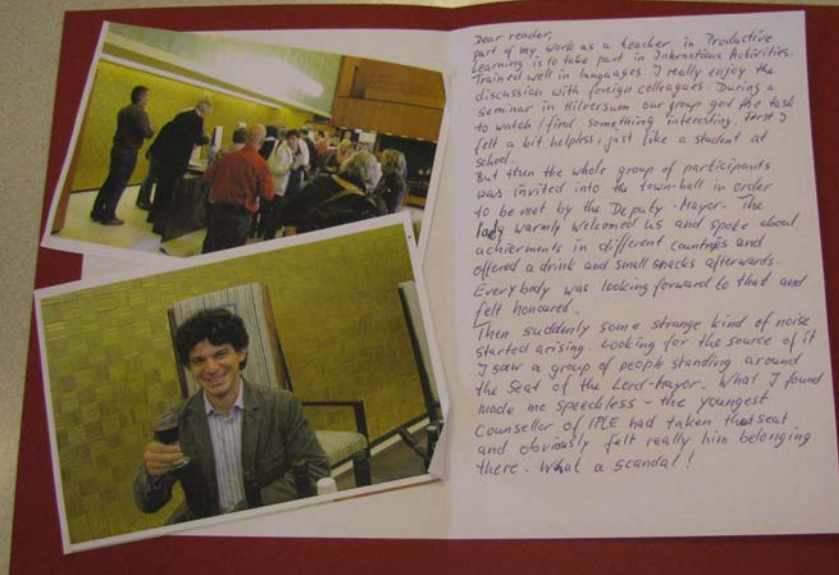 Dear reader,
part of my work as a teacher in Productive
Learning is to take part in Internationa Activities.
Trained well in languages I really enjoy the
discussion with foreign colleagues. During a
seminar in Hilversum our group god the task
to watch / find something interesting. First I
felt a bit helpless, just like a student at
school.
But then the whole group of participants
was invited into the town-hall in order
to be met by the Deputy-Mayor. The
lady warmly welcomed us and spoke about
achierments in different countries and
offered a drink and small snacks afterwards.
Everybody was looking forward to that and
felt honoured.
Then suddenly some strange kind of noise
started arising. Looking for the source of it
I saw a group of people standing around
the Seat of the Lord-Mayor. What I found
made me speechless - the youngest
Counsellor of IPLE had taken that seat
and obviously felt really him belonging
there. What a scandal!